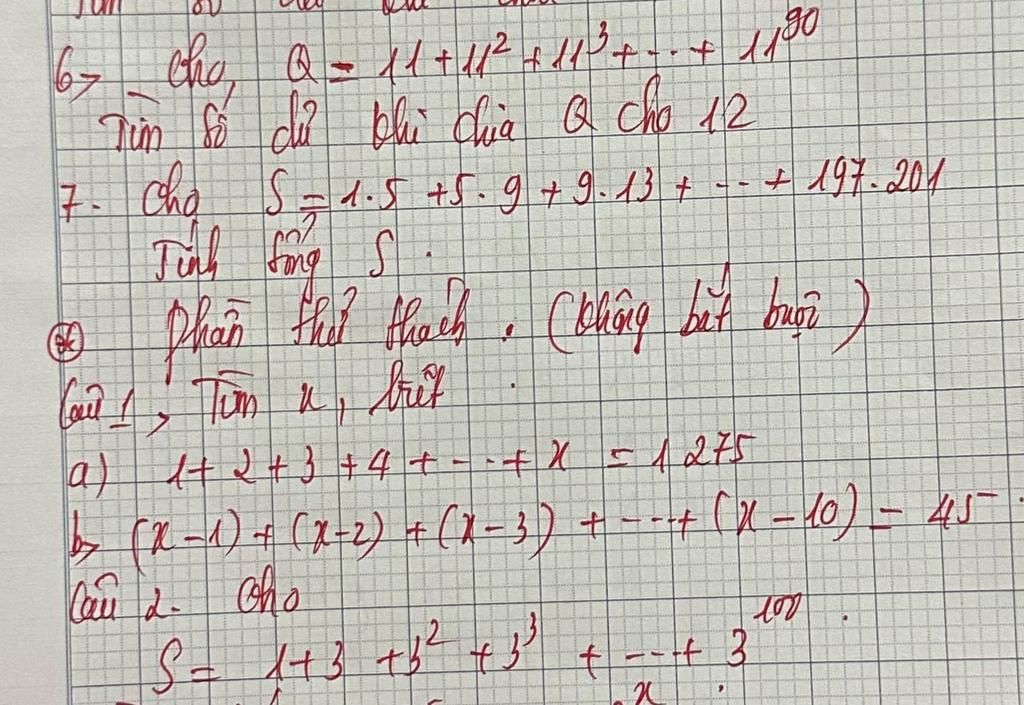 6, Cho, Q = 11 + 11² + 11³ + ... + 11⁹⁰
Tìm số dư khi chia Q cho 12
7. Cho S = 1.5 + 5.9 + 9.13 + ... + 197.201
Tính tổng S.
* Phần thử thách. (không bắt buộc)
Câu 1, Tìm x, biết
a) 1 + 2 + 3 + 4 + ... + x = 1 275
b, (x-1) + (x-2) + (x-3) + ... + (x-10) = 45
Câu 2. Cho
S = 1 + 3 + 3² + 3³ + ... + 3¹⁰⁰.